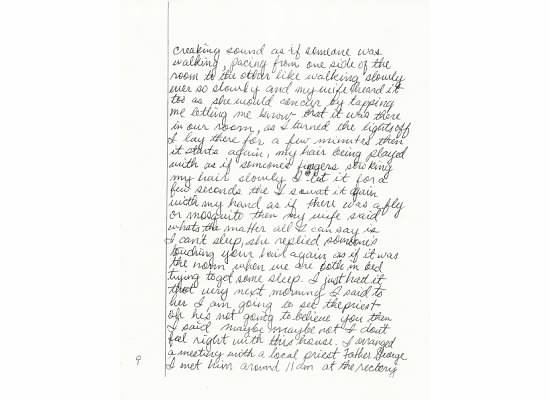 creaking sound as if someone was
walking, pacing from one side of the
room to the other like walking slowly
ever so slowly and my wife heard it
too as she would concur by tapping
me letting me know that it was there
in our room, as I turned the lights off
I lay there for a few minutes then
it starts again, my hair being played
with as if someones fingers stroking
my hair slowly I let it for a
few seconds the I swat it again
with my hand as if there was a fly
or mosquito then my wife said
whats the matter all I can say is
I can't sleep, she replied someone's
touching your hair again as if it was
the norm when we are both in bed
trying to get some sleep. I just had it
that very next morning I said to
her I am going to see the priest
oh he's not going to believe you then
I said maybe maybe not I dont
feel right with this house. I arranged
a meeting with a local priest Father George
I met him around 11 am at the rectory
9